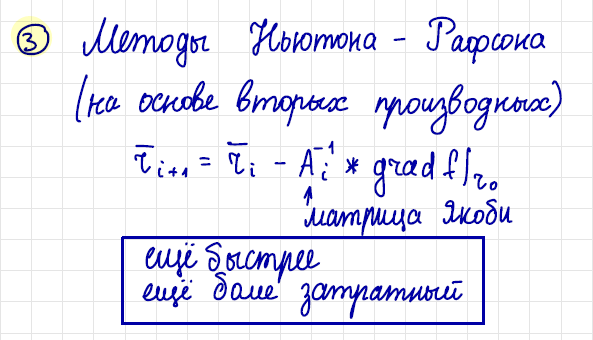 ③ Методы Ньютона - Рафсона
(на основе вторых производных)
r̄ᵢ₊₁ = r̄ᵢ - Aᵢ⁻¹ * grad f|r₀
↑
матрица Якоби
ещё быстрее
ещё боле затратный